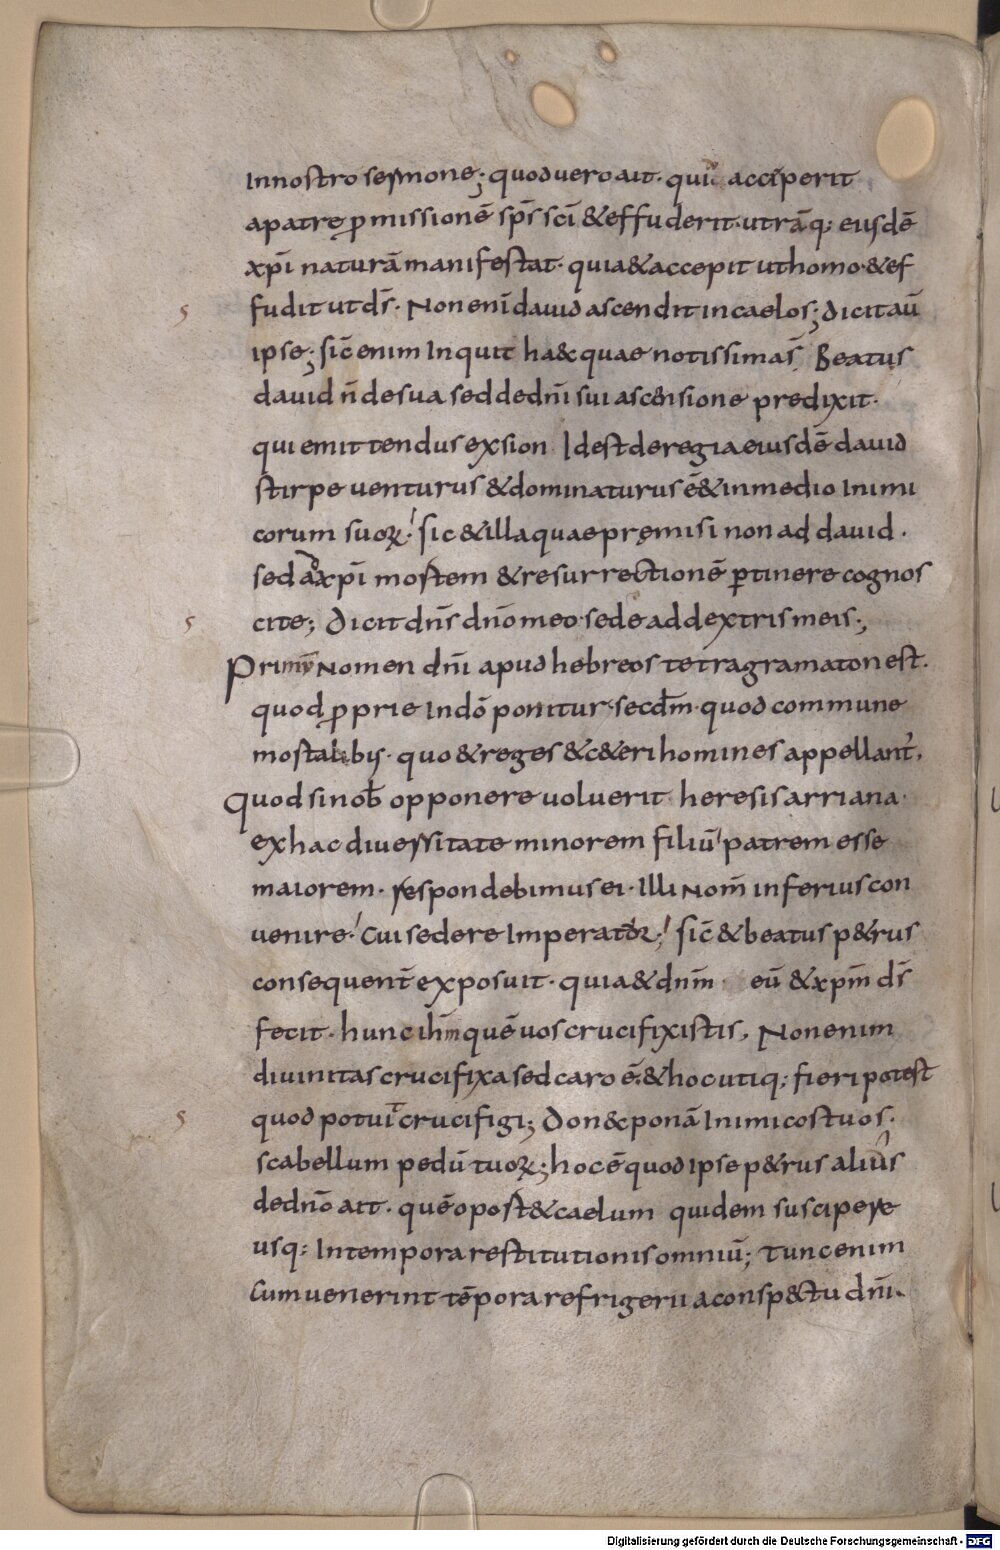 Innostro sermone; quod vero ait. qui acciperit
apatre ꝓmissionē sp̄s sc̄i & effuderit. utrāq; eiusdē
xp̄i naturā manifestat. quia & accepit ut homo. & ef
fudit ut d̄s. Non enī david ascendit in caelos; dicit aū
ipse; sic̄ enim Inquit ha&c quae notissimas̄ Beatus
david n̄ de sua sed de dn̄i sui ascensione predixit.
qui emittendus ex sion Idest de regia eiusdē david
stirpe venturus & dominaturus ē & in medio Inimi
corum suoꝝ. sic & illa quae premisi non ad david.
sed ad xp̄i mortem & resurrectionē ꝑtinere cognos
cite; Dicit dn̄s dn̄o meo. sede ad dextris meis;
Primū Nomen dn̄i apud hebreos tetragramaton est.
quod ꝓprie In dō ponitur. secdm̄. quod commune
mortalibus. quo & reges & c&eri homines appellant᷑.
Quod si nob̄ opponere voluerit heresis arriana.
ex hac diversitate minorem filiū patrem esse
maiorem. respondebimus ei. Illi Nom̄ inferius con
venire. Cui sedere Imperatoꝝ; sic̄ & beatus p&rus
consequent̄ exposuit. quia & dnm̄ eū & xpm̄ d̄s
fecit. hunc ihm̄ quē vos crucifixistis, Non enim
divinitas crucifixa sed caro ē. & hoc utiq; fieri potest
quod potuit crucifigi; Don&c ponā Inimicos tuos.
scabellum pedū tuoꝝ; hoc ē quod ipse p&rus alius
de dn̄o ait. quē oport& caelum quidem suscipere
usq; In tempora restitutionis omniū; Tunc enim
Cum venerint tēpora refrigerii a conspectu dn̄i.
Digitalisierung gefördert durch die Deutsche Forschungsgemeinschaft - DFG